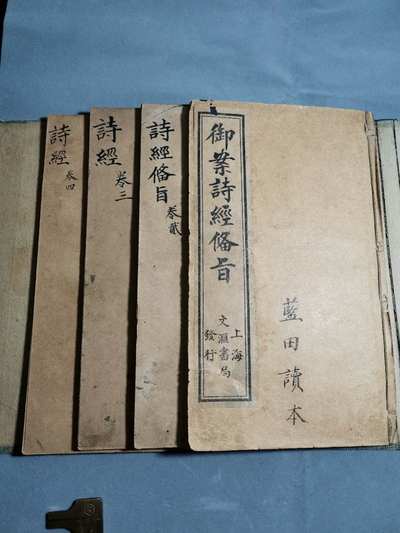 藍田讀本
御案詩經俻旨
上海
文匯書局
發行
詩經俻旨
卷貳
詩經
卷三
詩經
卷四